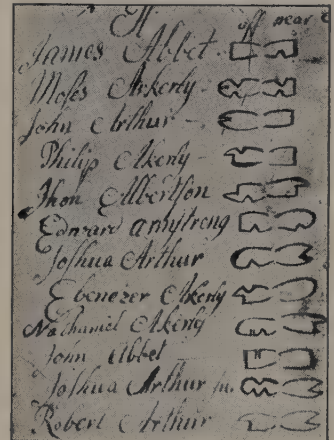 A
off near e
James Abbet
Moses Ackerly
John Arthur
Philip Akerly
Jhon Albertson
Edward armstrong
Joshua Arthur
Ebenezer Akerly
Nathaniel Akerly
John Abbet
Joshua Arthur Ju.
Robert Arthur